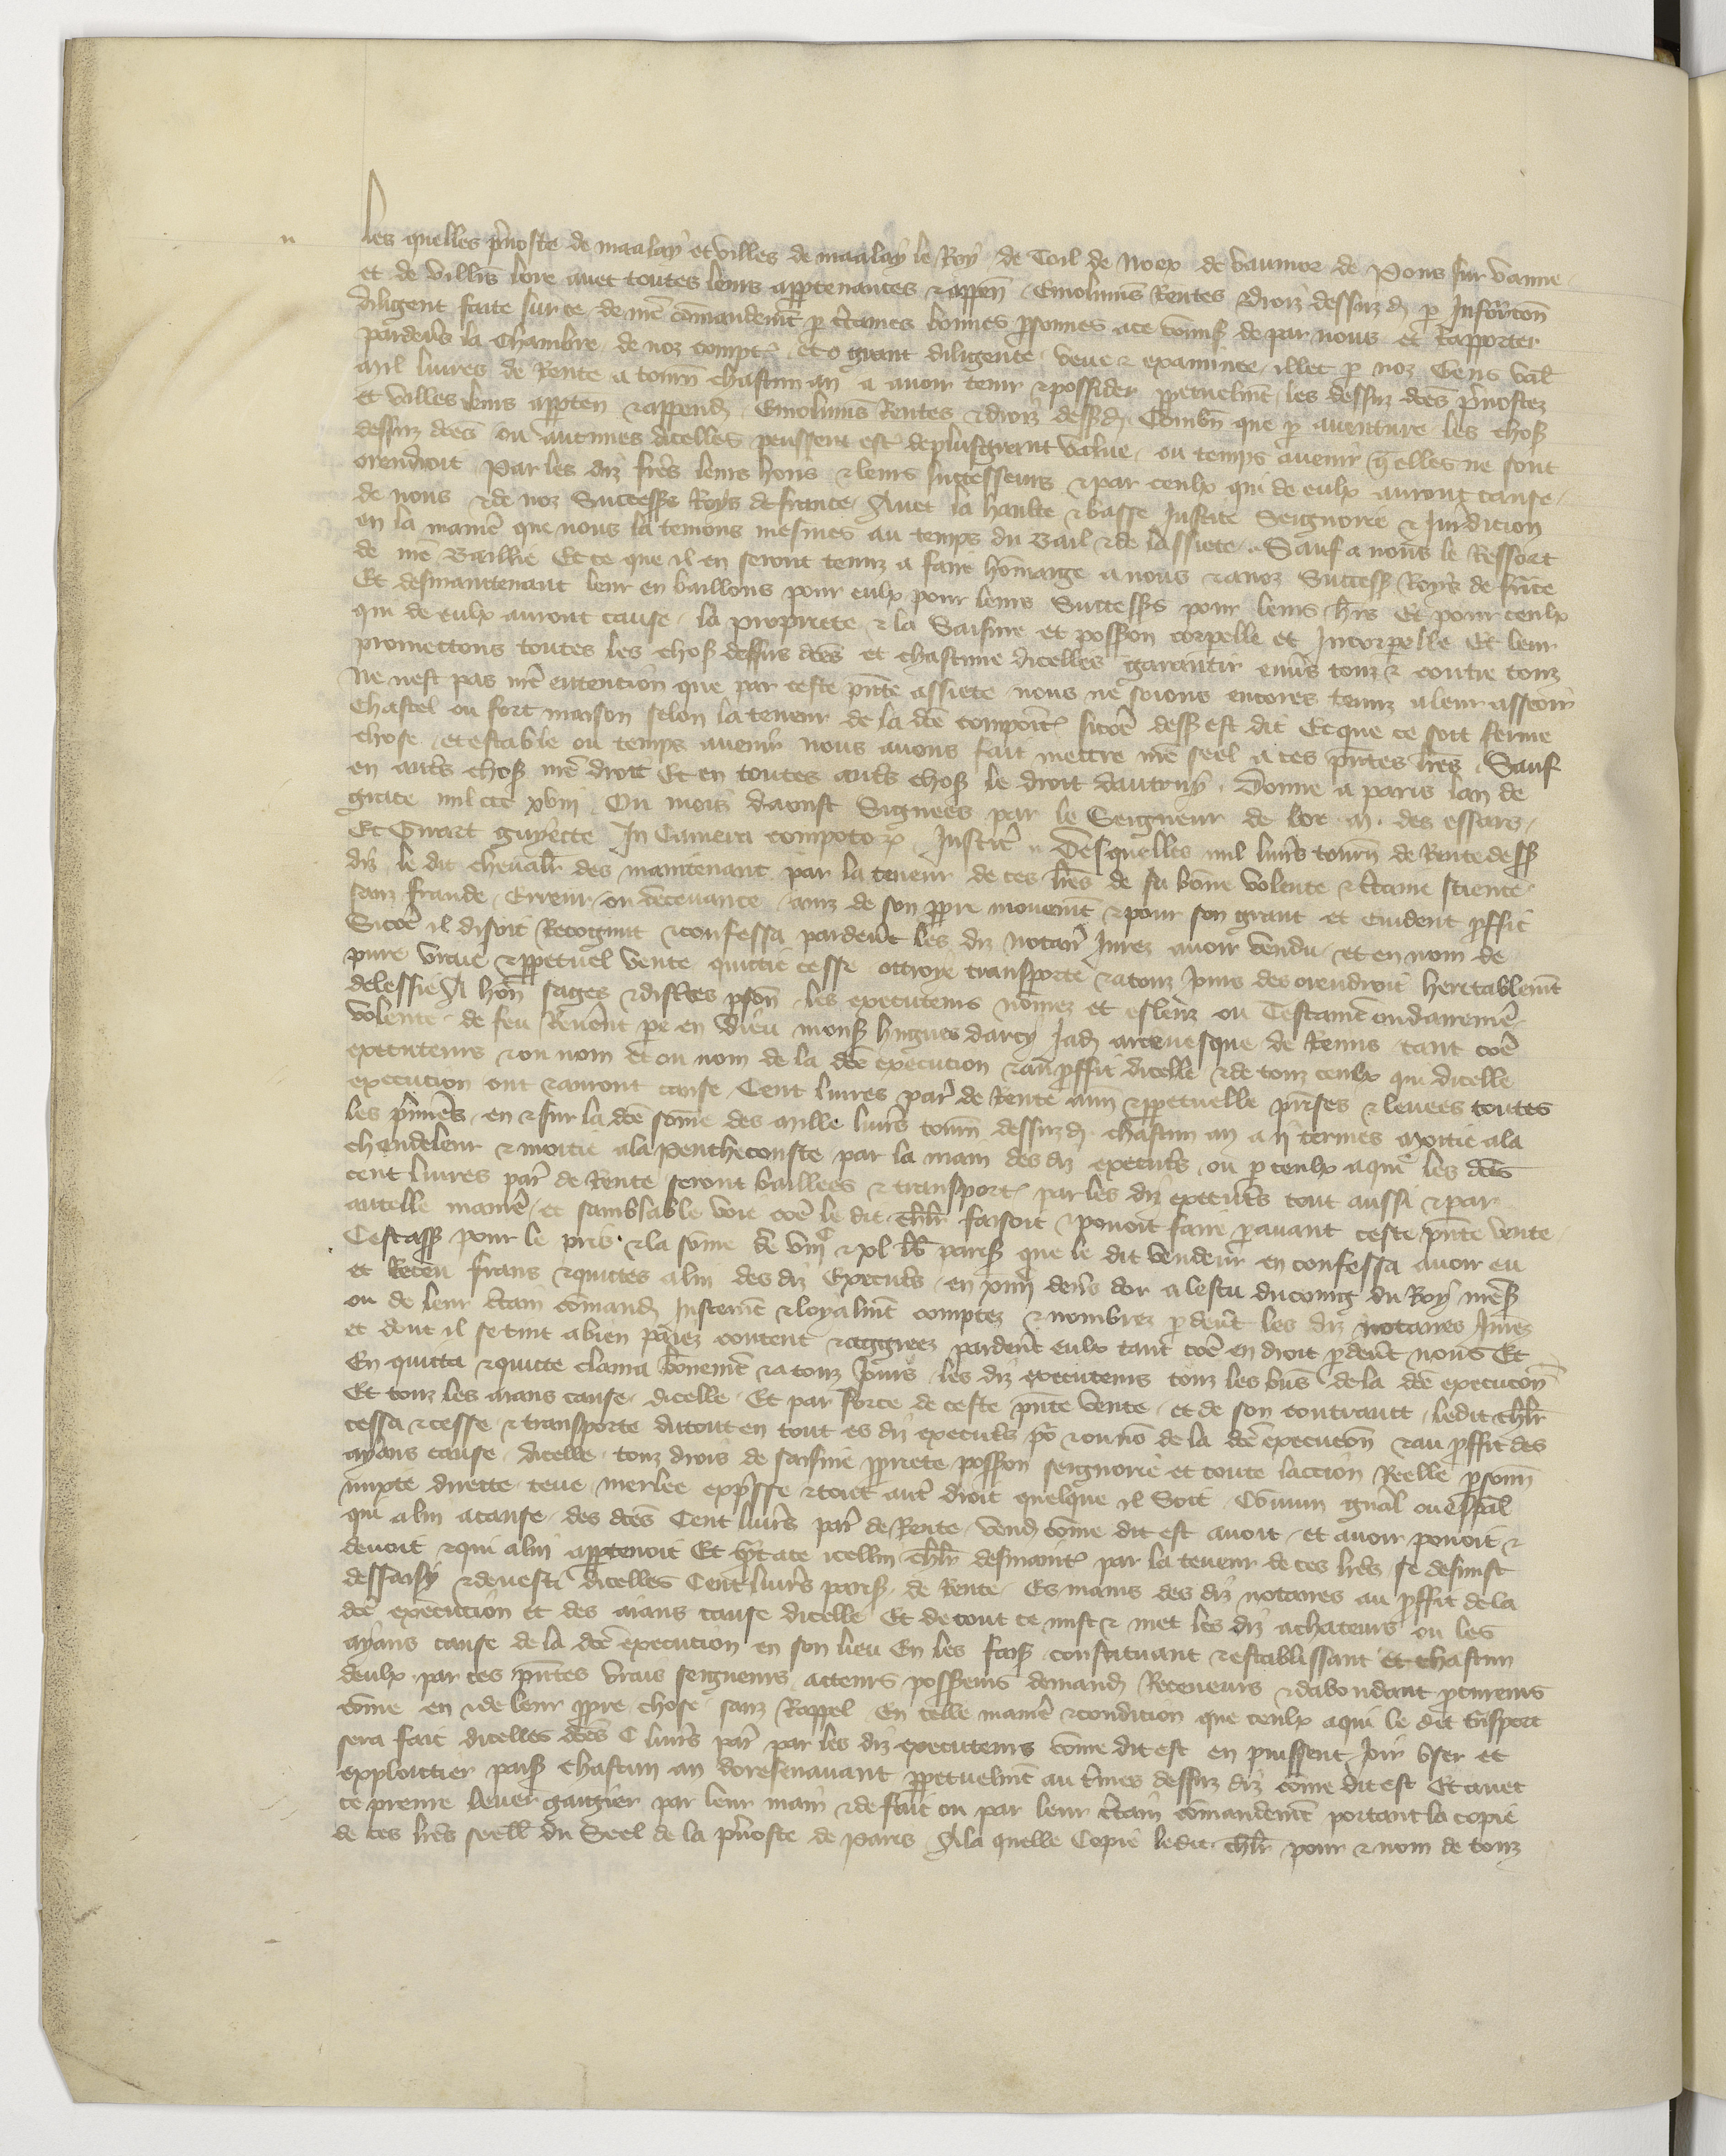 Les quelles p̃uoste de maalay et villes de maalay le Roy de Toil de Noex de vaumor de Pons sur vanne
et de villẽs loue auec toutes leurs apptenances ⁊ appeñ Emolumẽs Rentes ⁊ droiz dessuz ď p Infor̃cõn
diligent faite sur ce de nr̃e cõmandemẽt p ctaines bonnes psonnes a ce cõmis de par nous et Rapporter
pardeũs la Chambre de noz compt̃ et o grant diligence veue ⁊ examinee illec p noz Gens vaĺ
mil liures de Rente a tourñ chascun an a auoir tenir ⁊ possider ppetuelmẽt les dessuz dc̃es p̃uostez
et villes leurs appteñ ⁊ append̃ Emolumẽs Rentes ⁊ droiz dess ď Combiñ que p auenture les chos̃
dessuz dc̃es ou aucunes dicelles peussent estr̃ de plusgrant value ou temps auenir q̃lles ne sont
orendroit Par les diz fr̃es leurs hoirs ⁊ leurs successeurs ⁊ par ceulx qui de eulx auront cause
de nous ⁊ de noz Successrs Roys de france Auec la haulte ⁊ basse Justice Seignorie ⁊ Juridicion
en la manĩe que nous la tenions mesmes au temps du Bail ⁊ de lassiete Sauf a nous le Ressort
de nr̃e Baillie Et ce que il en seront tenuz a faire hõmaige a nous ⁊ a noz Success̃ Roys de frñce
Et desmaintenant leur en baillons pour eulx pour leurs Successrs pour leurs hr̃s Et pour ceulx
qui de eulx auront cause la propriete ⁊ la Saisine et possion corpelle et Incorpelle Et leur
promettons toutes les chos̃ dessus dc̃es et chascune dicelles garantir enuers touz ⁊ contre touz
Ne nest pas nr̃e entencion que par ceste pñte assiete nous ne soions encores tenuz a leur asseoir
Chastel ou fort maison selon la teneur de la dc̃e compoit̃ sicõe dess̃ est dit Et que ce soit ferme
chose et estable ou temps auenir nous auons fait mettre nr̃e seel a ces pñtes lr̃es Sauf
en autr̃s chos̃ nr̃e droit Et en toutes autr̃s chos̃ le droit dautruy Donne a paris lan de
grace mil ccc xviij Ou mois daoust Signees par le Seigneur de bor m des essars
Et Girart guyecte In Camera compotoꝝ Juster̃ Desquelles mil liur̃s tourñ de Rente dess̃
diz le dit cheualr̃ des maintenant par la teneur de ces lr̃es de sa bõne volente ⁊ ctaine science
sanz fraude Erreur ou deceuance ainz de son ppre mouuemẽt ⁊ pour son grant et euident prffit
Sicõe il disoit Recognut ⁊ confessa pardeũt les diz notair̃ Jurez auoir vendu et en nom de
pure vraie ⁊ ppetuel vente quittie cesse ottroye transporte ⁊ a touz Jours des orendroit heritablemẽt
delessie A hoñ sages ⁊ discr̃es psoñ les executeurs nõmez et esleuz ou Testamẽ ou darreinne
volente de feu Reuer̃nt pe en dieu mons̃ hugues darcy Jad̃ arceuesque de Reims tant cõe
executeurs ⁊ ou nom et ou nom de la dc̃e execution ⁊ au prffit dicelle ⁊ de touz ceulx qui dicelle
execucion ont ⁊ auront cause Cent liures par̃ de Rente anñ ⁊ ppetuelle prĩses ⁊ leuees toutes
les p̃miers en ⁊ sur la dc̃e sõme des mille liur̃s tourñ dessuz ď chascun an a ij termes moitie a la
chandeleur ⁊ moitie a la penthecouste par la main des diz executr̃s ou p ceulx a qui les dc̃es
cent liures par̃ de Rente seront baillees ⁊ transport̃ par les diz executr̃s tout aussi ⁊ par
autelle manĩe et samblable voie cõe le dit chlr̃ faisoit ⁊ pouoit faire pauant ceste pñte vente
Cestass̃ pour le pris ⁊ la sõme de viijͨ ⁊ xl lb̃ paris̃ que le dit vendeur en confessa auoir eu
et Receu frans ⁊ quictes a lui des diz Executr̃s en xiiij deñs dor a lescu du coing du Roy nr̃es̃
ou de leur ctain cõmand̃ Justemẽt ⁊ loyalmẽt comptez ⁊ nombrez p deũt les diz notaires Jurez
et dont il se tint a bien paiez content ⁊ aggreez pardeũt eulx tant cõe en droit pdeũt nous Et
En quitta ⁊ quitte clama bõnemẽt ⁊ a touz Jours les diz executeurs touz les biẽs de la dc̃e execucõn
Et touz les aians cause dicelle Et par force de ceste pñte vente et de son contraut ledit chlr̃
cessa ⁊ cesse ⁊ transporte du tout en tout es diz executr̃s pr̃ ⁊ ou nõ de la dc̃e execucõn ⁊ au prffit des
ayans cause dicelle touz drois de saisine ppriete possion seignorie et toute laccion Reelle psonñ
mixte directe teue merlee exp̃sse ⁊ tout autr̃ droit quelque il Soit Cõmun gñal ou espãl
qui a lui a cause des dc̃es Cent liur̃s par̃ de Rente vend̃ cõme dit est auoit et auoir pouoit ⁊
deuoit ⁊ qui a lui apptenoit Et qut̃ a ce icellui chlr̃ desmaint̃ par la teneur de ces lr̃es se desmist
dessaisy ⁊ deuesti dicelles Cent liur̃s paris̃ de Rente Es mains des diz notaires au prffit de la
dc̃e execucion et des aians cause dicelle Et de tout ce mist ⁊ met les diz achateurs ou les
ayans cause de la dc̃e execucion en son lieu En les fais̃ constituant ⁊ establissant et chascun
deulx par ces pñtes vrais seigneurs acteurs possesseurs demand̃ Receueurs ⁊ dabondant pcureurs
cõme en ⁊ de leur ppre chose sanz Rappel En telle manĩe ⁊ condicion que ceulx a qui le dit tñsport
sera fait dicelles dc̃es C liur̃s par̃ par les diz executeurs cõme dit est en puissent Joir vser et
exploittier pais̃ chascun an doresenauant ppetuelmẽt au tr̃mes dessuz diz cõme dit est Et auec
ce penre leuer gaigier par leur main ⁊ de fait ou par leur ctain cõmandemẽt portant la copie
de ces lr̃es seell̃ du Seel de la p̃uoste de paris A la quelle Copie ledit chlr̃ pour ⁊ nom de touz